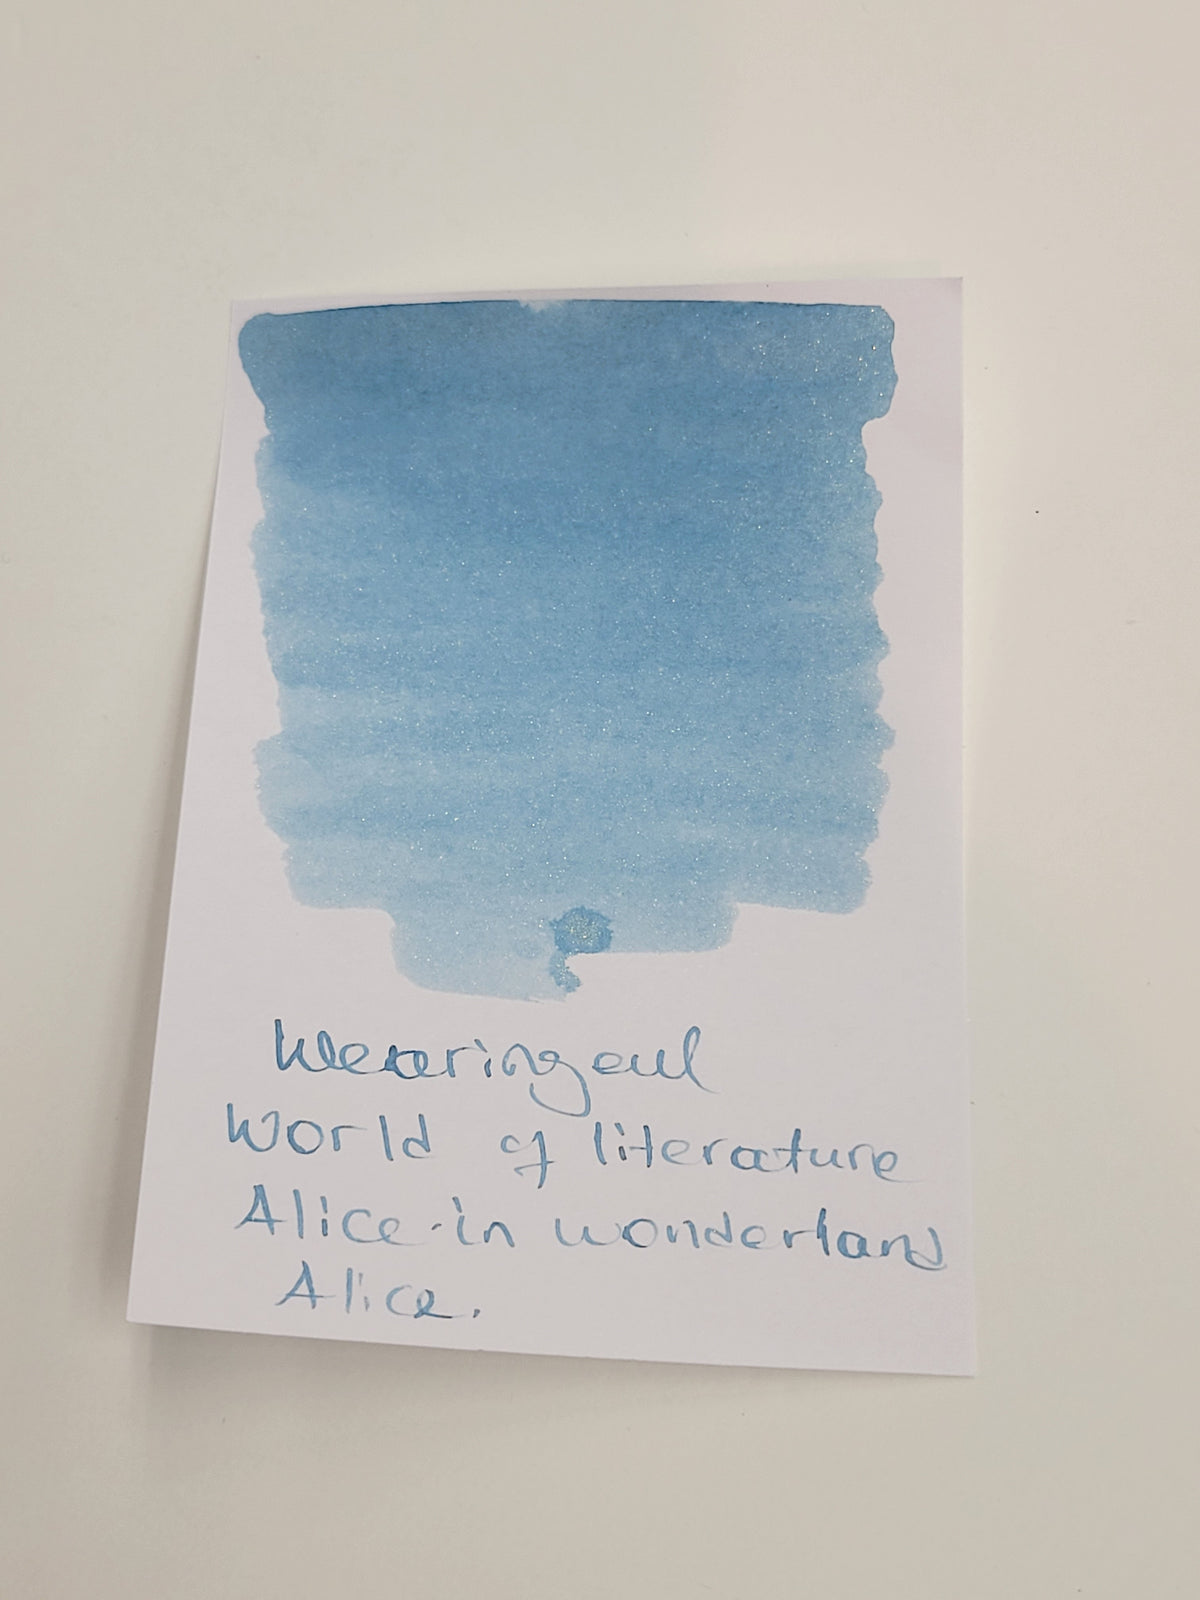 Wearingeul
World of literature
Alice in wonderland
Alice.